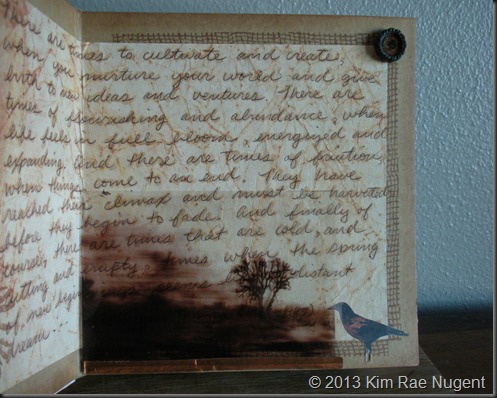 There are times to cultivate and create,
when you nurture your world and give
birth to new ideas and ventures. There are
times of flourishing and abundance, when
life feels in full bloom, energized and
expanding. And there are times of fruition,
when things come to an end. They have
reached their climax and must be harvested
before they begin to fade. And finally of
course, there are times that are cold, and
cutting and empty, times when the spring
of new beginnings seems like a distant
dream.
© 2013 Kim Rae Nugent